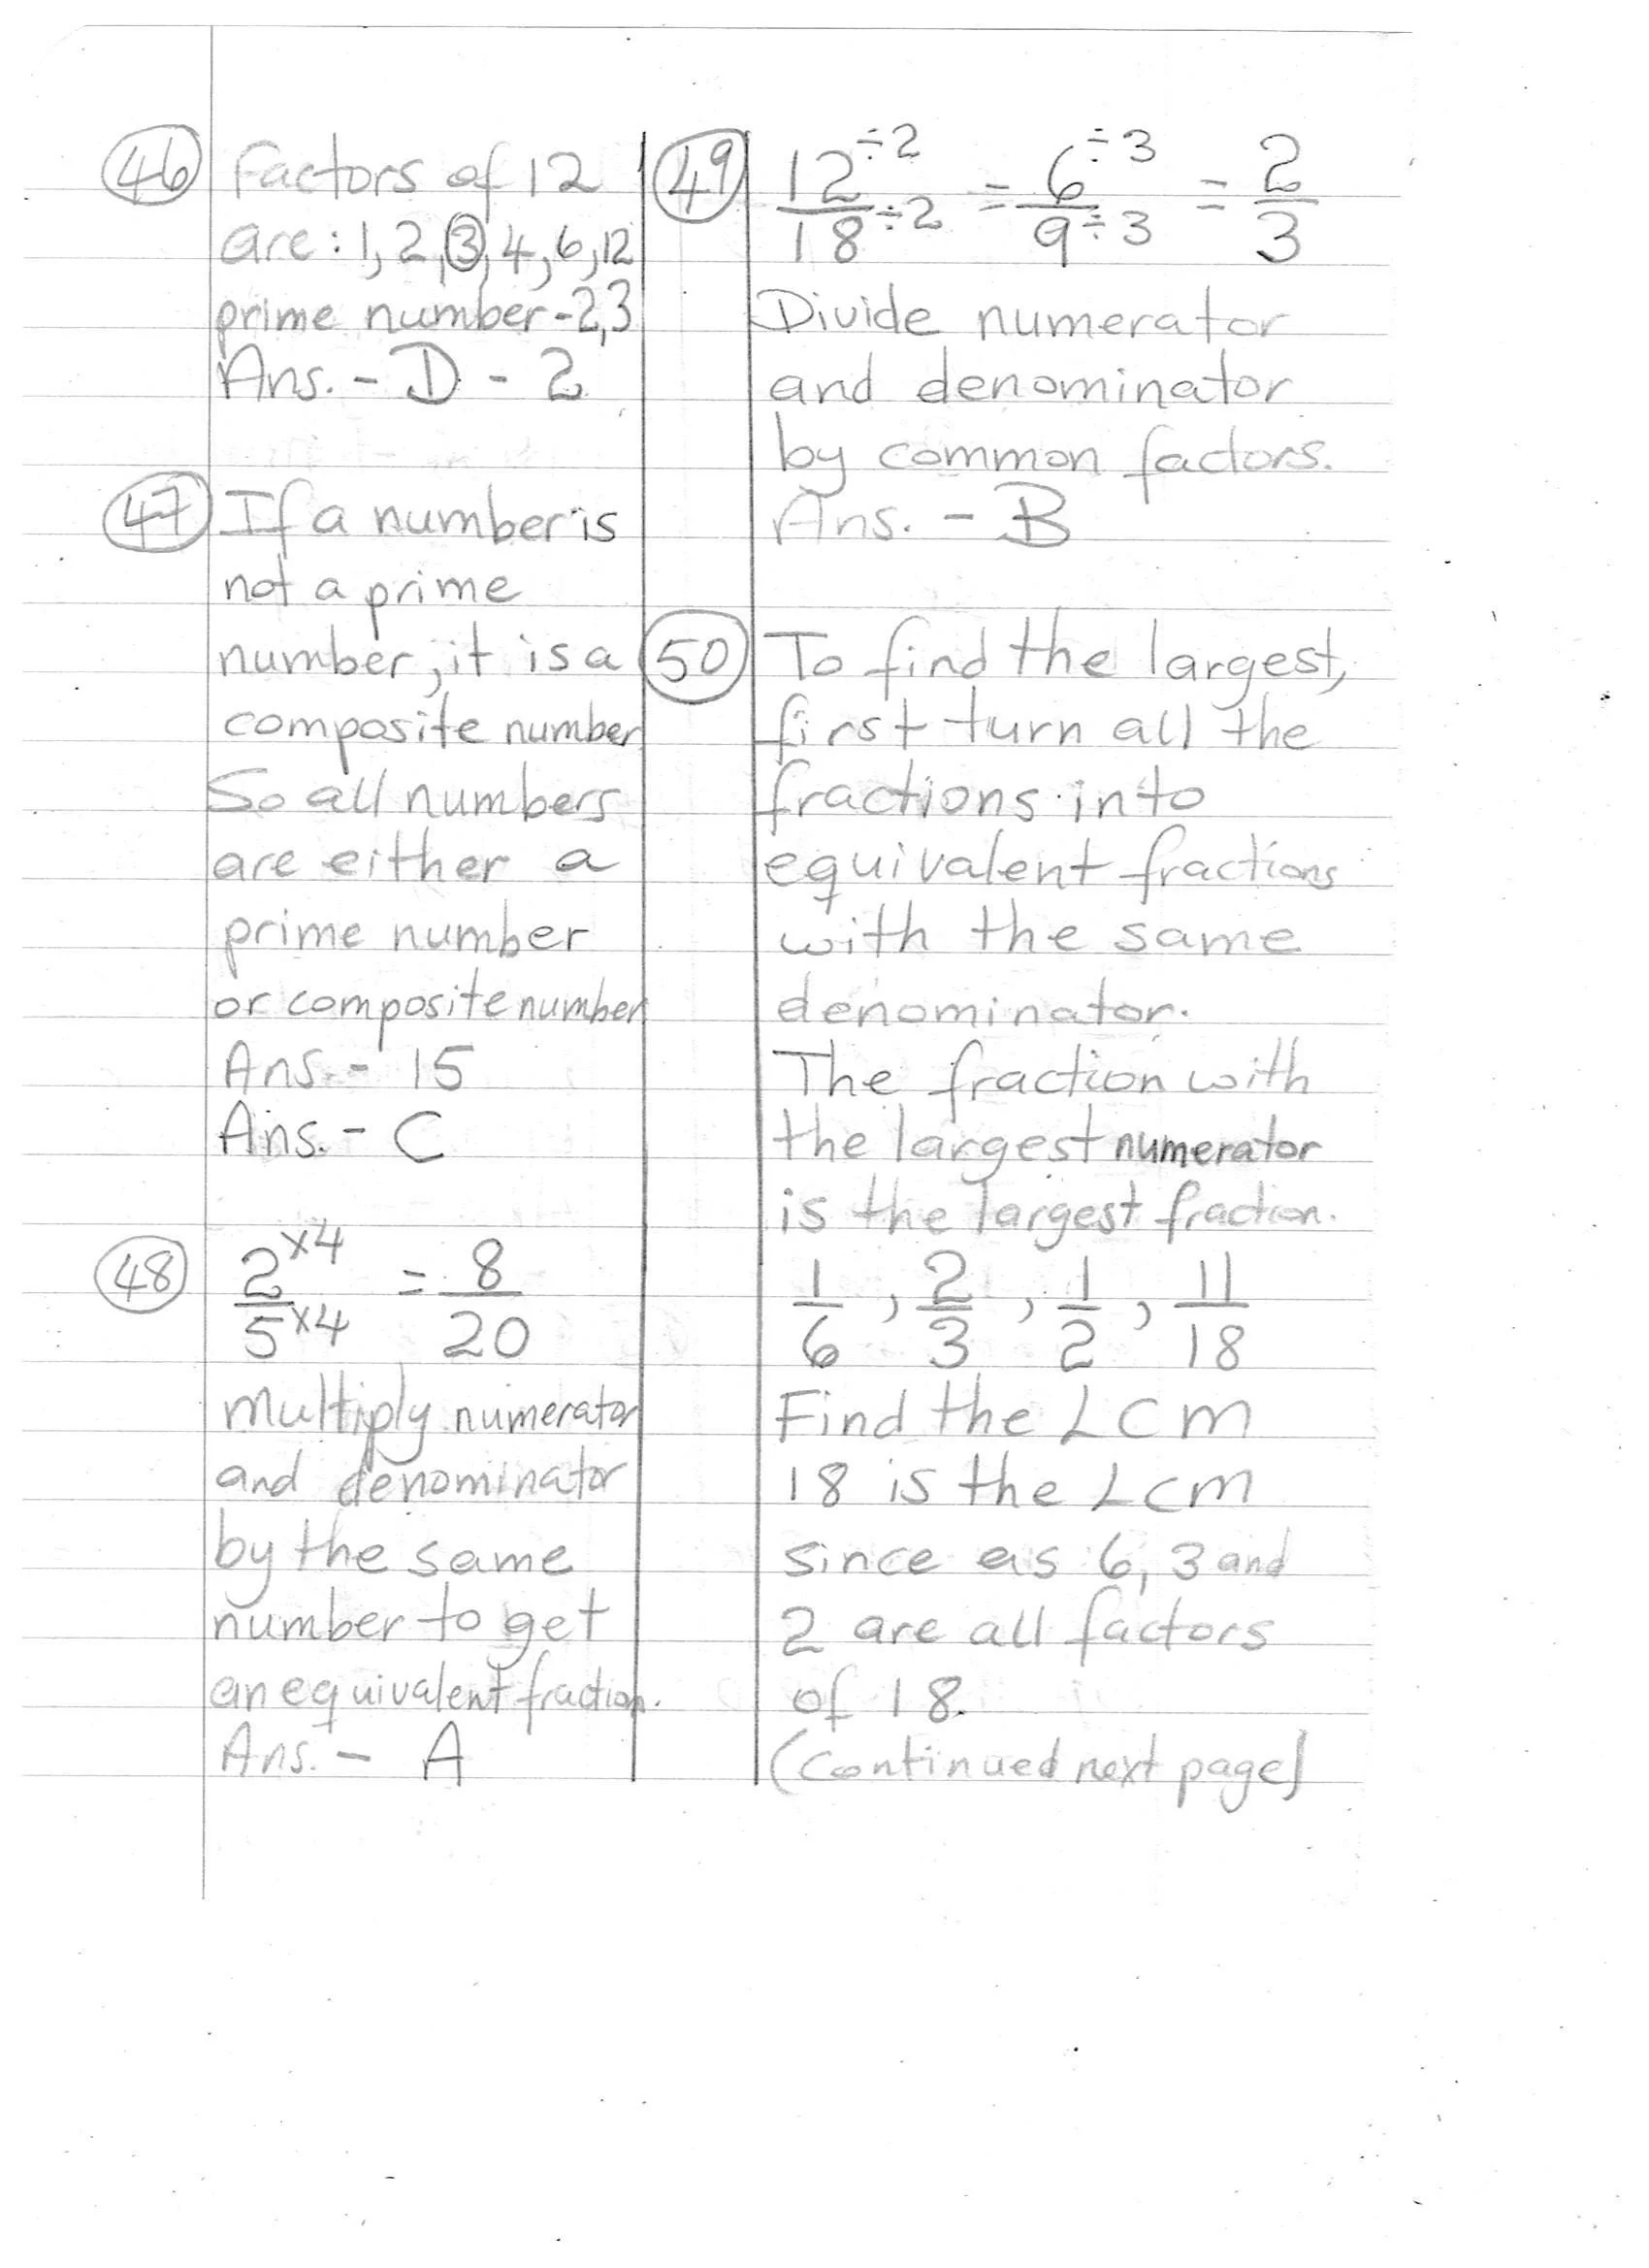 46 Factors of 12
are: 1, 2, 3, 4, 6, 12
prime number - 2,3
Ans. - D - 2
47 If a number is
not a prime
number, it is a
composite number
So all numbers
are either a
prime number
or composite number
Ans. - 15
Ans. - C
48 2×4/5×4 = 8/20
multiply numerator
and denominator
by the same
number to get
an equivalent fraction.
Ans. - A
49 12÷2/18÷2 = 6÷3/9÷3 = 2/3
Divide numerator
and denominator
by common factors.
Ans. - B
50 To find the largest,
first turn all the
fractions into
equivalent fractions
with the same
denominator.
The fraction with
the largest numerator
is the largest fraction.
1/6, 2/3, 1/2, 11/18
Find the LCM
18 is the LCM
since as 6, 3 and
2 are all factors
of 18.
(Continued next page)